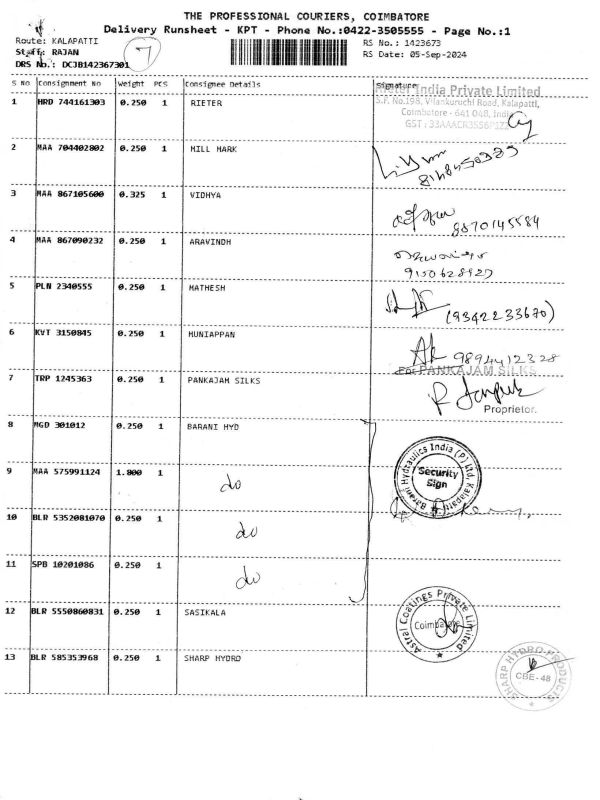 THE PROFESSIONAL COURIERS, COIMBATORE
Delivery Runsheet - KPT - Phone No.:0422-3505555 - Page No.:1
Route: KALAPATTI
Staff: RAJAN
DRS No.: DCJB142367301
7
RS No.: 1423673
RS Date: 05-Sep-2024
S No Consignment No Weight PCS Consignee Details Signature
Rieter India Private Limited
S.F. No.198, Vilankuruchi Road, Kalapatti,
Coimbatore - 641 048, India
1 HRD 744161303 0.250 1 RIETER
2 MAA 704402802 0.250 1 MILL MARK
3 MAA 867105600 0.325 1 VIDHYA
8870145584
4 MAA 867090232 0.250 1 ARAVINDH
5 PLN 2340555 0.250 1 MATHESH
(9342233670)
6 KVT 3150845 0.250 1 MUNIAPPAN
9894412328
For PANKAJAM SILKS
7 TRP 1245363 0.250 1 PANKAJAM SILKS
Proprietor.
8 MGD 301012 0.250 1 BARANI HYD
Barani Hydraulics India (P) Ltd, Kalapatti
Security
Sign
9 MAA 575991124 1.800 1 do
10 BLR 5352081070 0.250 1 do
11 SPB 10201086 0.250 1 do
12 BLR 5550860831 0.250 1 SASIKALA
Astral Coatings Private Limited
Coimbatore
13 BLR 585353968 0.250 1 SHARP HYDRO
SHARP HYDRO PRODUCTS
CBE-48